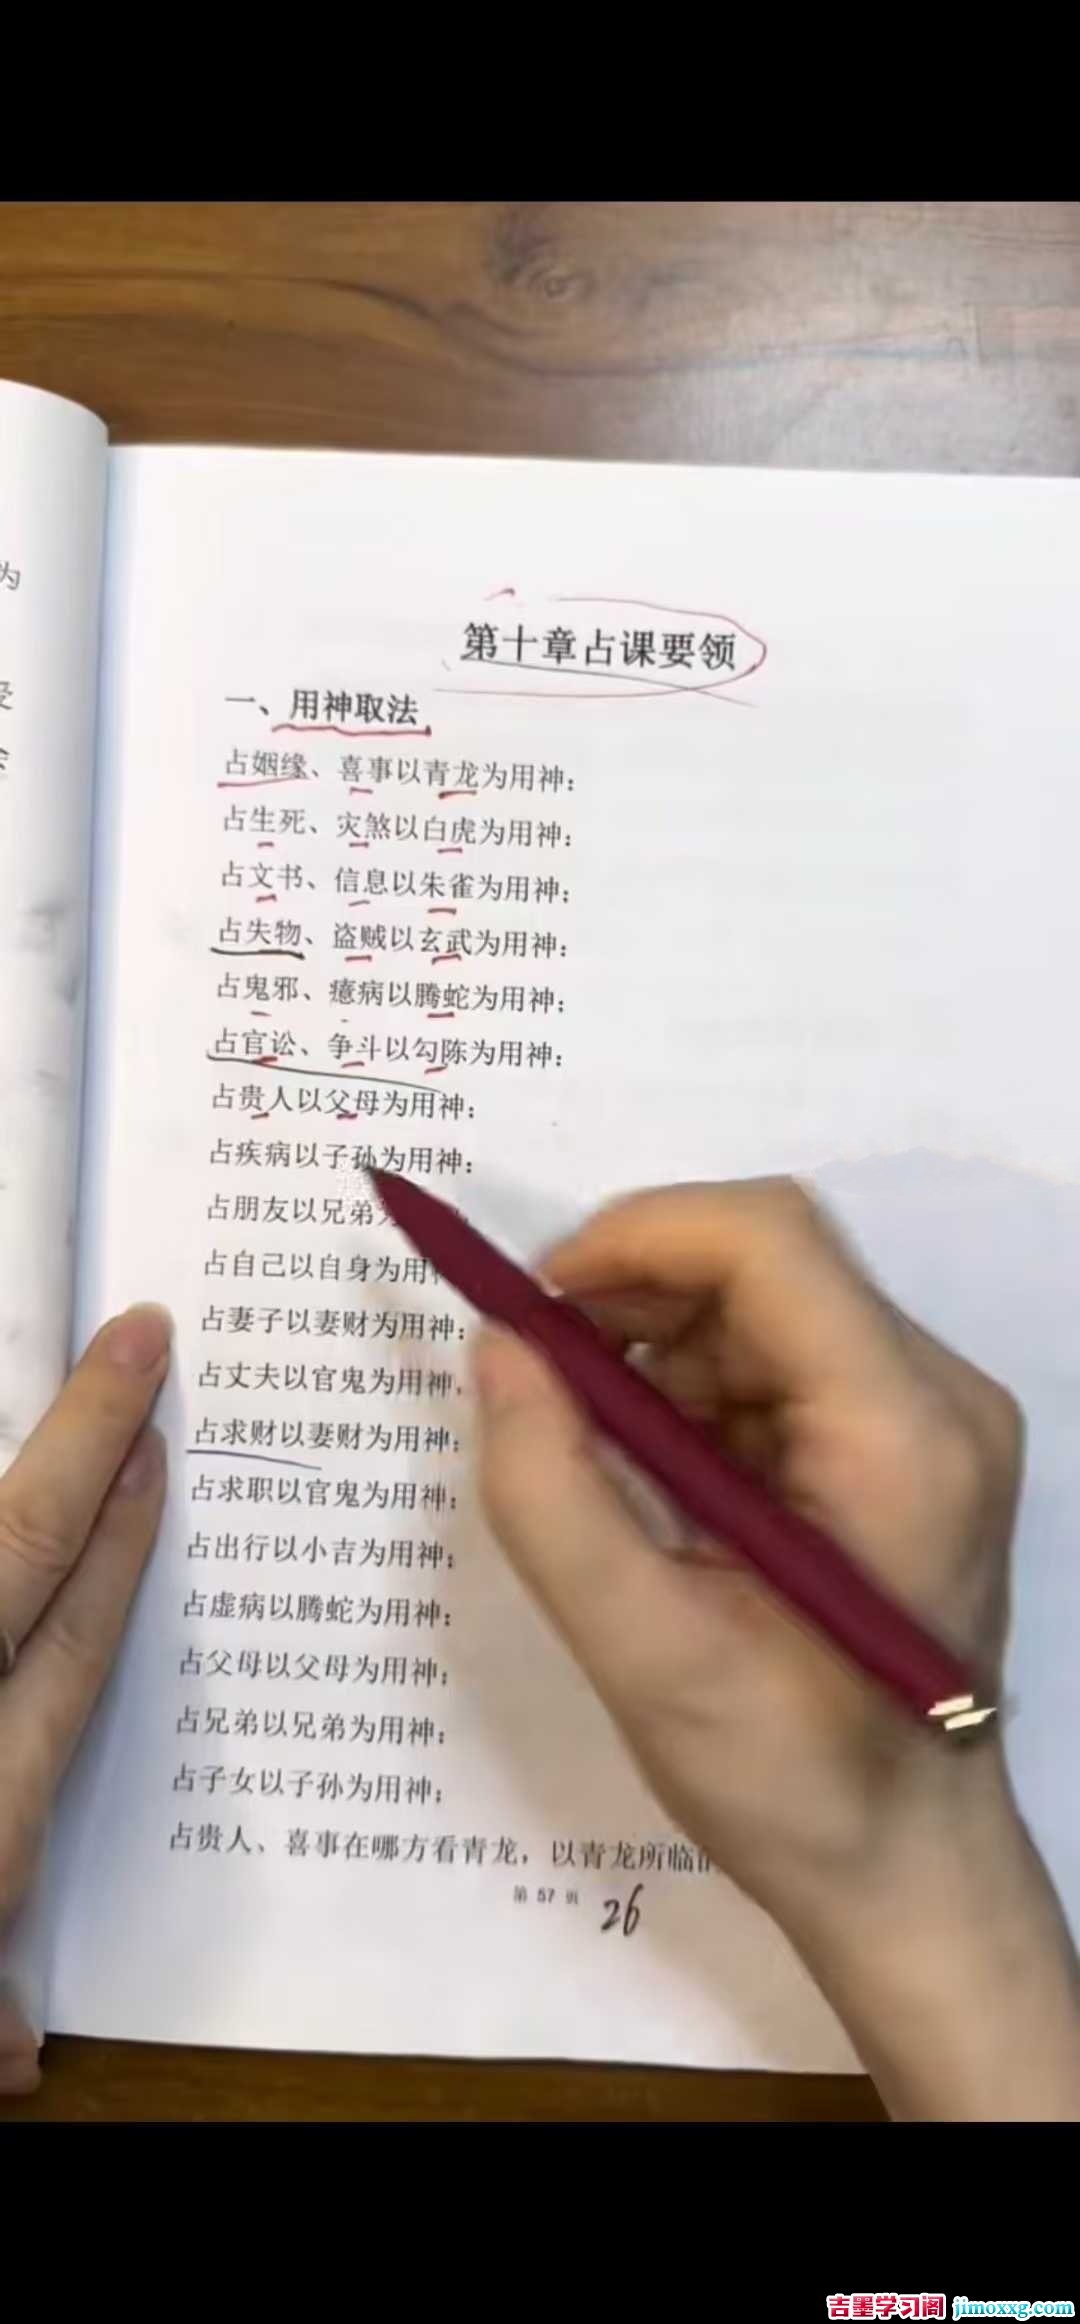 为
受
第十章占课要领
一、用神取法
占姻缘、喜事以青龙为用神；
占生死、灾煞以白虎为用神；
占文书、信息以朱雀为用神；
占失物、盗贼以玄武为用神；
占鬼邪、癔病以腾蛇为用神；
占官讼、争斗以勾陈为用神；
占贵人以父母为用神；
占疾病以子孙为用神；
占朋友以兄弟为
占自己以自身为用神
占妻子以妻财为用神；
占丈夫以官鬼为用神；
占求财以妻财为用神；
占求职以官鬼为用神；
占出行以小吉为用神；
占虚病以腾蛇为用神；
占父母以父母为用神；
占兄弟以兄弟为用神；
占子女以子孙为用神；
占贵人、喜事在哪方看青龙，以青龙所临
第 57 页
26
吉墨学习阁 jimoxxg.com